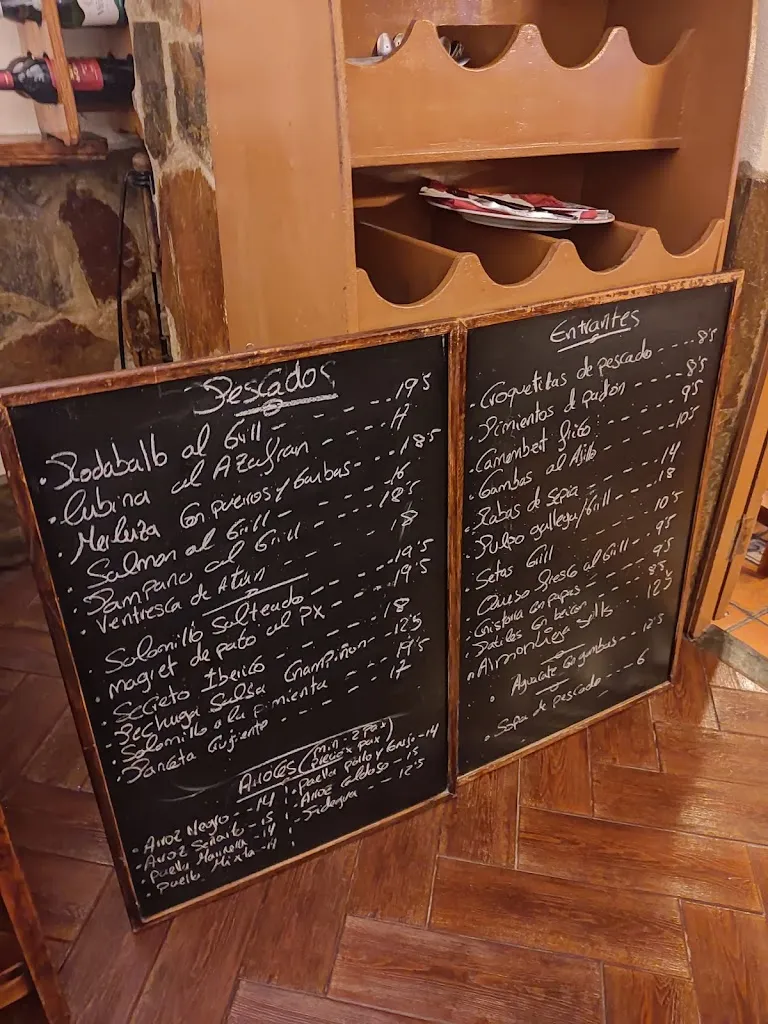 Pescados
· Rodaballo al Grill - - - - 19'5
· Lubina al Azafran - - - - 17
· Merluza con puerros y Gambas - - - 18'5
· Salmon al Grill - - - - 16
· Pampano al Grill - - - - 18'5
· Ventresca de Atun - - - 18
· Solomillo Salteado - - - 19'5
· magret de pato al PX - - - 19'5
· Secreto Iberico - - - 18
· Pechuga Salsa Champiñon - - 12'5
· Solomillo a la pimienta - - - 19'5
· Panceta Crujiente - - - - 17
Arroces (min. 2 pax
precio x pax)
· Arroz Negro - 14
· Arroz Señorito - 15
· paella Marinera - 14
· paella Mixta - 14
· paella pollo y - 14
· Arroz Caldoso - 15
· Fidegua - - 12'5
Entrantes
· Croquetitas de pescado - - - 8'5
· Pimientos d padron - - - - 8'5
· Camembert frito - - - - 9'5
· Gambas al Ajillo - - - - 10'5
· Rabas de Sepia - - - 14
· Pulpo gallega/Grill - - - 18
· Setas Grill - - - - 10'5
· Queso fresco al Grill - - - 9'5
· Chistorra con papas - - - 9'5
· Datiles con beicon - - - 8'5
· Almon 12'5
· Aguacate con gambas - - - 12'5
· Sopa de pescado - - - 6